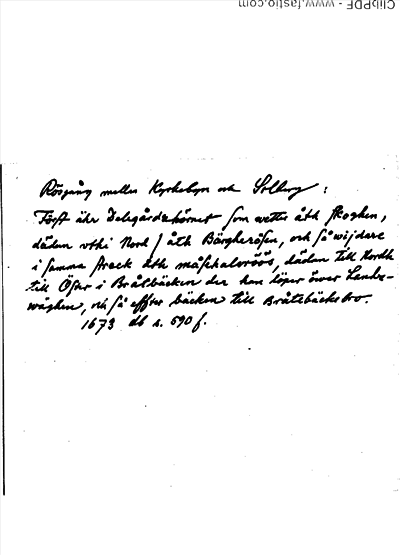 ClibPDF - www.fastio.com
Rösgång mellan Kyrkebyn och Solberg :
Först ähr Delegårdzhörnet som wetter åth skoghen,
däden uthi Nord / åth Bärgherösen, och så wijdare
i samma streck åth mäskalsröös, däden till Nordh
till Öster i Bråtbäcken der han löper öwer Landz-
wäghen, och så effter bäcken till Bråtebäcksbro.
1673 db s. 590 f.